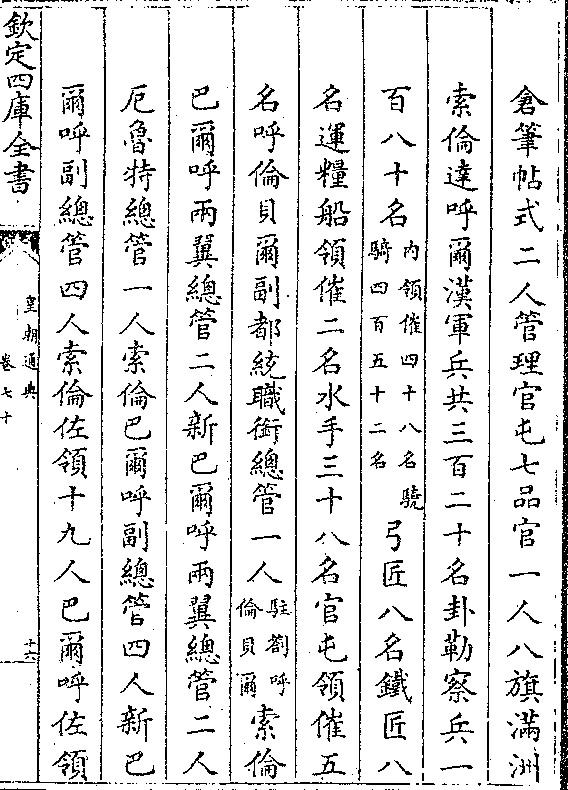 倉筆帖式二人管理官屯七品官一人八旗滿洲
索倫達呼爾漢軍兵共三百二十名卦勒察兵一
百八十名內領催四十八名驍騎四百五十二名弓匠八名鐵匠八
名運糧船領催二名水手三十八名官屯領催五
名呼倫貝爾副都統職銜總管一人駐劄呼倫貝爾索倫
巴爾呼兩翼總管二人新巴爾呼兩翼總管二人
厄魯特總管一人索倫巴爾呼副總管四人新巴
爾呼副總管四人索倫佐領十九人巴爾呼佐領
欽定四庫全書
皇朝通典
卷七十
十六